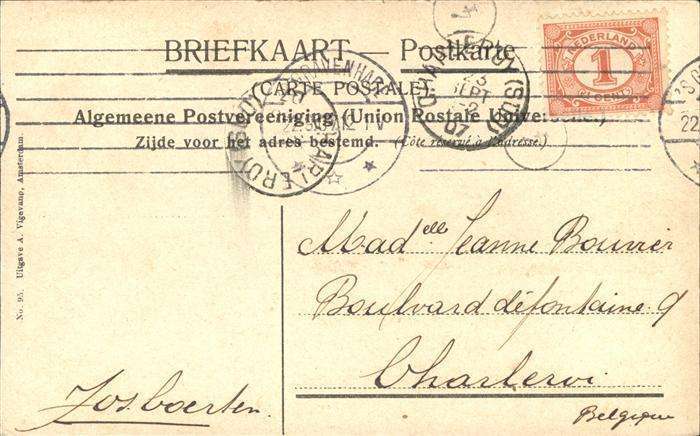 BRIEFKAART — Postkarte
(CARTE POSTALE)
Algemeene Postvereeniging (Union Postale Universelle.)
Zijde voor het adres bestemd. (Côté réservé à l'adresse.)
NEDERLAND
1
CENT
CHARLEROY (SUD)
23
SEPT
07
CHARLEROY (SUD)
'S GRAVENHAGE
22
No. 95. Uitgave A. Vigevano, Amsterdam.
Madelle Jeanne Bouvier
Boulvard défontaine 9
Charleroi
Belgique
Jos. Coerten